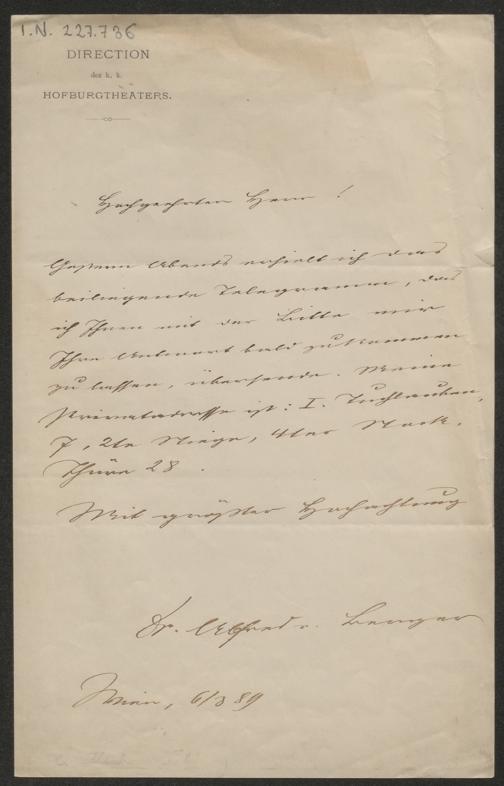 I.N. 227.736
DIRECTION
des k. k.
HOFBURGTHEATERS.
Hochgeehrter Herr!
Gestern Abends erhielt ich das
beiliegende Telegramm, das
ich Ihnen mit der Bitte mir
Ihre Antwort bald zukommen
zu lassen, übersende. Meine
Privatadresse ist: I. Tuchlauben,
7, 2te Stiege, 4ter Stock,
Thüre 28.
Mit größter Hochachtung
Dr. Alfred v. Berger
Wien, 6/3 89